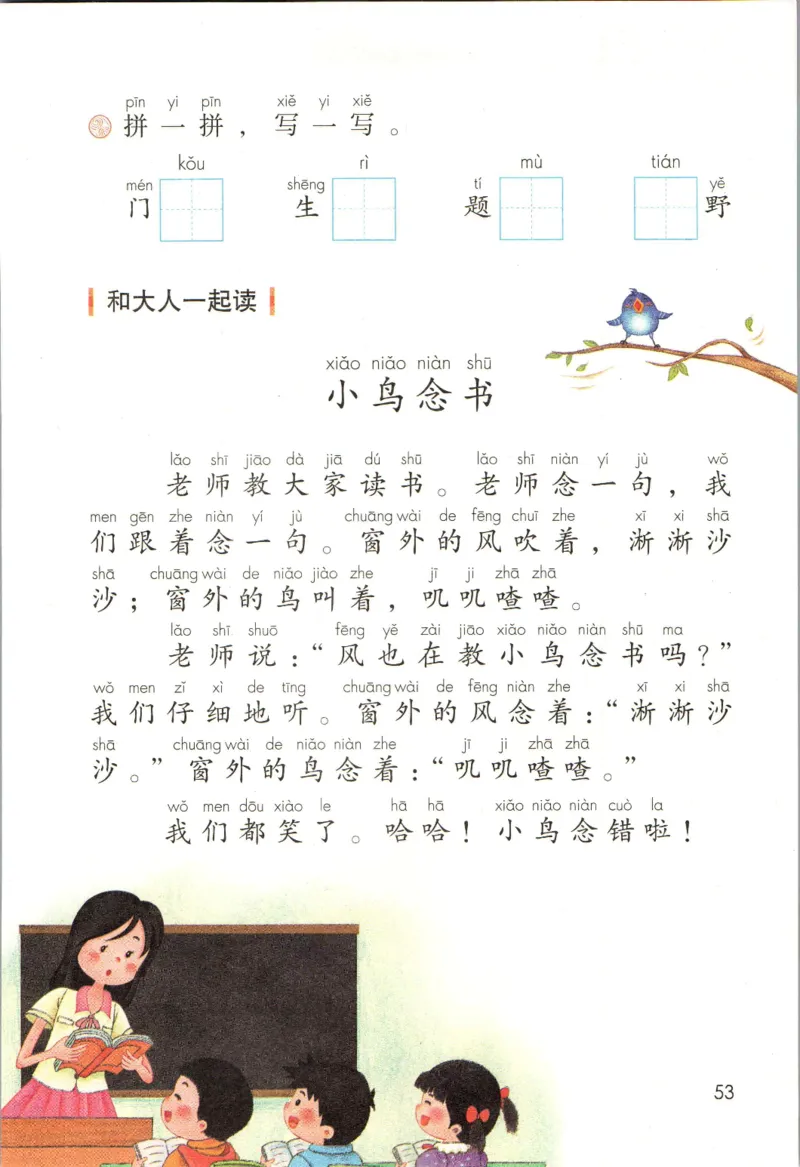 pīn yi pīn xiě yi xiě
拼一拼，写一写。
kǒu rì mù tián
mén shēng tí yě
门 生 题 野
和大人一起读
xiǎo niǎo niàn shū
小鸟念书
lǎo shī jiāo dà jiā dú shū lǎo shī niàn yí jù wǒ
老师教大家读书。老师念一句，我
men gēn zhe niàn yí jù chuāng wài de fēng chuī zhe xī xi shā
们跟着念一句。窗外的风吹着，淅淅沙
shā chuāng wài de niǎo jiào zhe jī ji zhā zhā
沙；窗外的鸟叫着，叽叽喳喳。
lǎo shī shuō fēng yě zài jiāo xiǎo niǎo niàn shū ma
老师说：“风也在教小鸟念书吗？”
wǒ men zǐ xì de tīng chuāng wài de fēng niàn zhe xī xi shā
我们仔细地听。窗外的风念着：“淅淅沙
shā chuāng wài de niǎo niàn zhe jī ji zhā zhā
沙。”窗外的鸟念着：“叽叽喳喳。”
wǒ men dōu xiào le hā hā xiǎo niǎo niàn cuò la
我们都笑了。哈哈！小鸟念错啦！
53